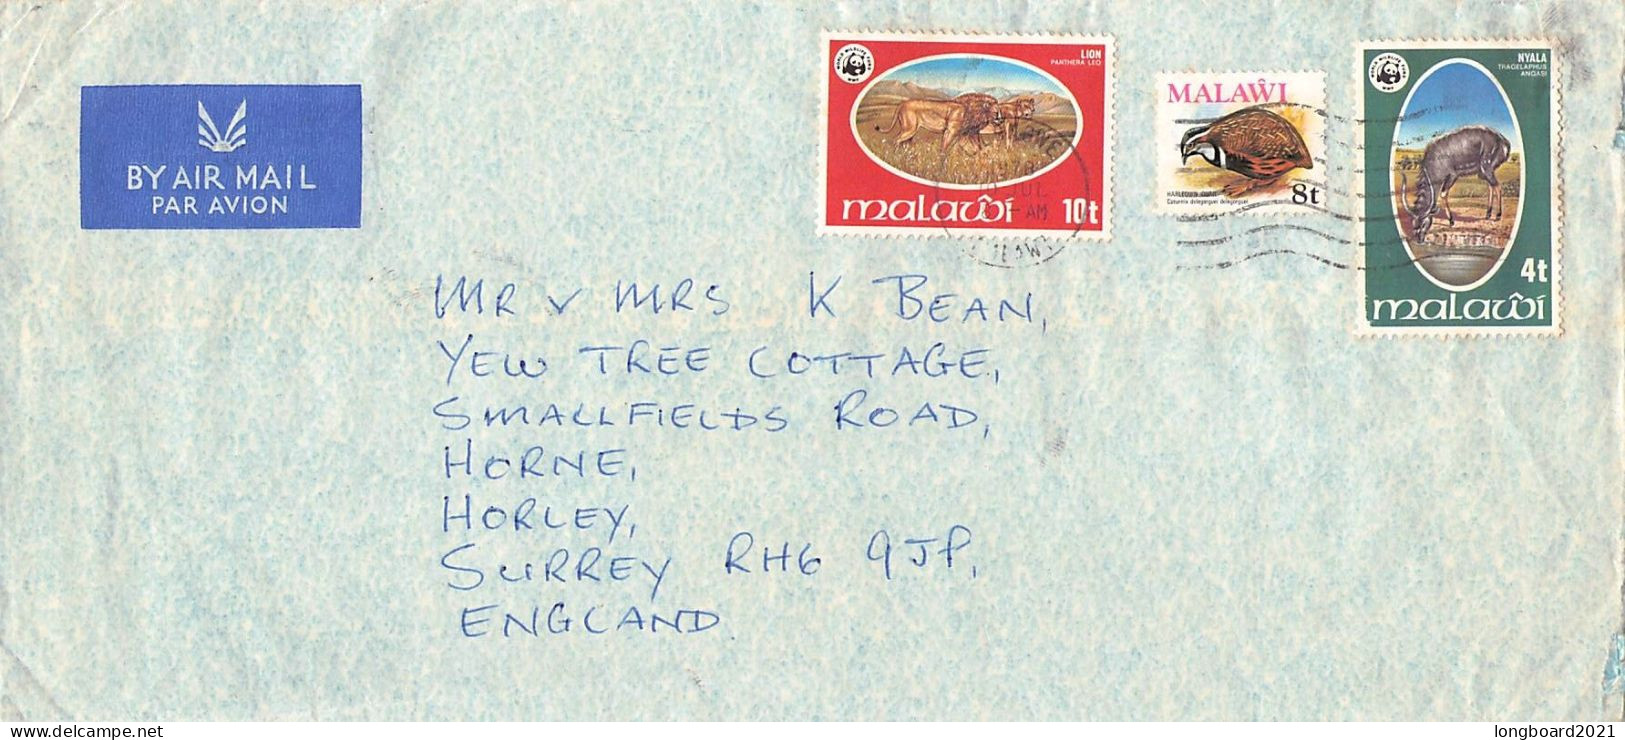 BY AIR MAIL
PAR AVION
WORLD WILDLIFE FUND
WWF
LION
PANTHERA LEO
malaŵi 10t
JUL
AM
MALAŴI
HARLEQUIN QUAIL
Coturnix delegorguei delegorguei
8t
WORLD WILDLIFE FUND
WWF
NYALA
TRAGELAPHUS
ANGASI
4t
malaŵi
MR & MRS K BEAN,
YEW TREE COTTAGE,
SMALLFIELDS ROAD,
HORNE,
HORLEY,
SURREY RH6 9JP,
ENGLAND
delcampe.net
longboard2021